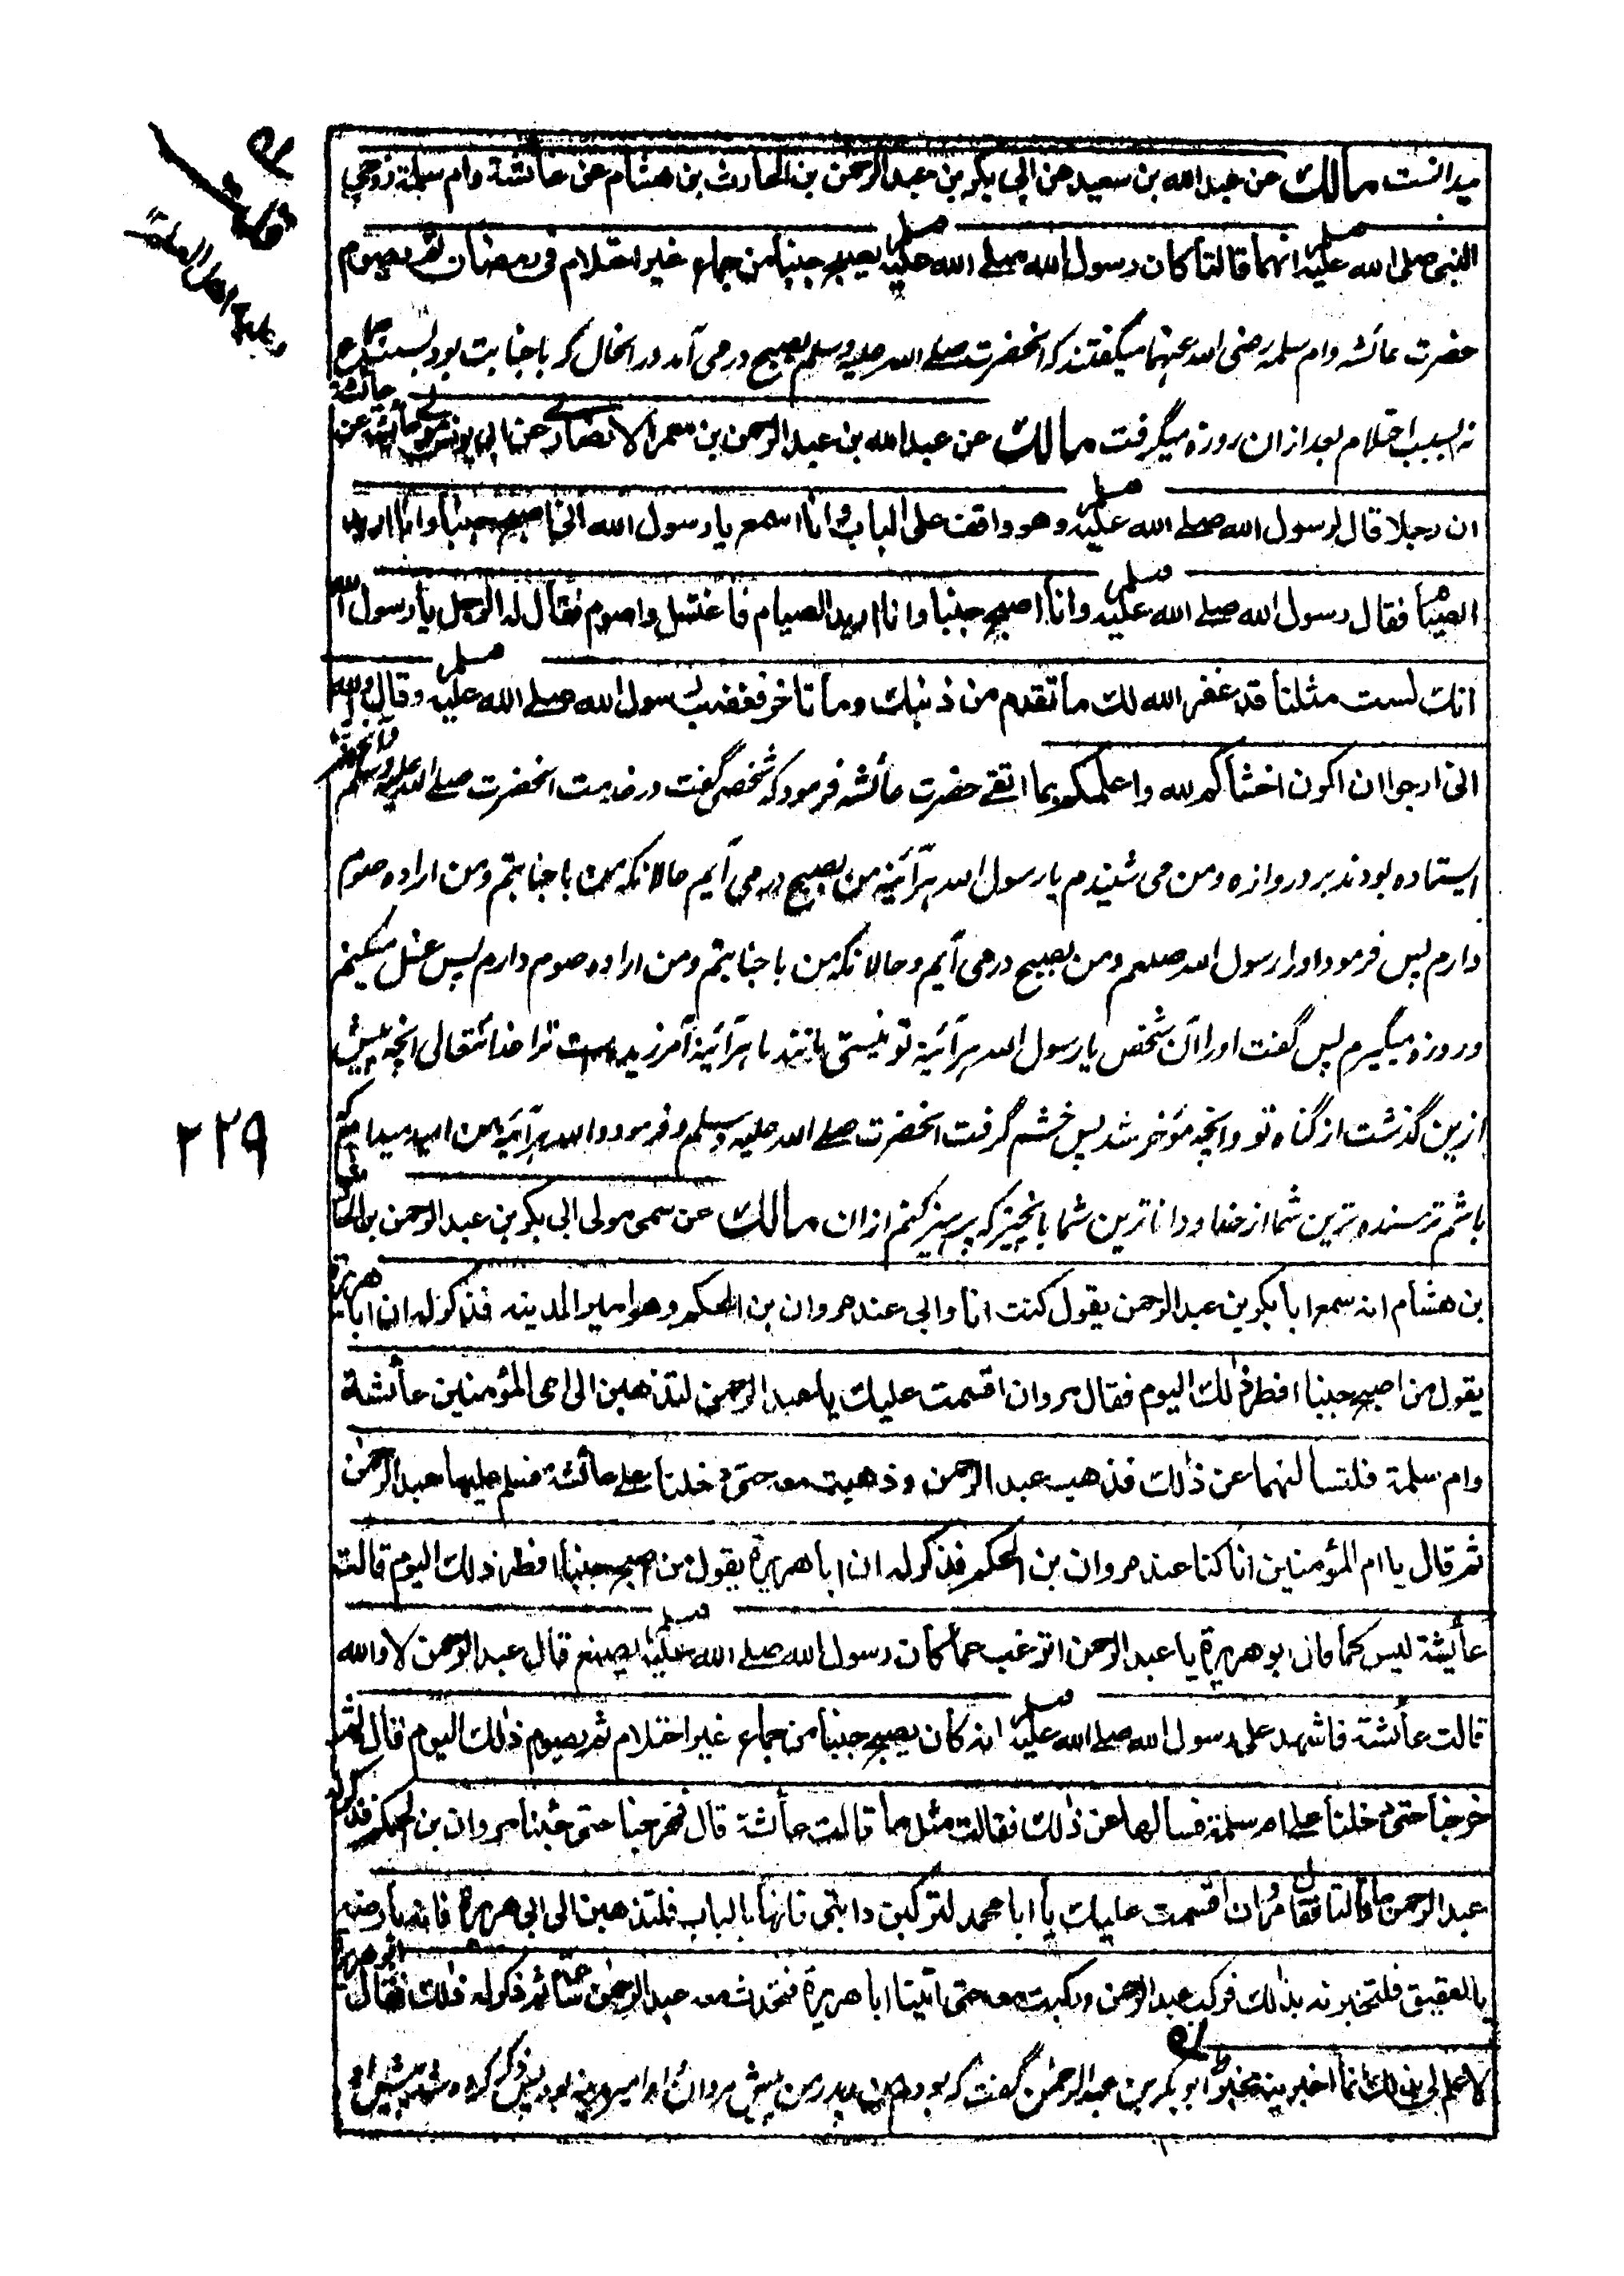 میدانست مالك عن عبدالله بن سعید عن ابی بکر بن عبدالرحمن بن الحارث بن هشام عن عائشة وام سلمة زوجی
النبی صلی الله علیه وسلم انهما قالتا کان رسول الله صلے الله علیه وسلم یصبح جنبا من جماع غیر احتلام فی رمضان ثم یصوم
حضرت عائشه وام سلمه رضی الله عنهما میگفتند که انحضرت صلے الله علیه وسلم بصبح درمی آمد در انحال که باجنابت بود بسبب جماع
نه بسبب احتلام بعد ازان روزه میگرفت مالك عن عبدالله بن عبدالرحمن بن معمر الانصاری عن ابی یونس مولی عائشة عن عائشة
ان رجلا قال لرسول الله صلے الله علیه وسلم وهو واقف علی الباب وانا اسمع یا رسول الله انی اصبح جنبا وانا ارید
الصیام فقال رسول الله صلے الله علیه وسلم وانا اصبح جنبا وانا ارید الصیام فاغتسل واصوم فقال له الرجل یا رسول الله
انك لست مثلنا قد غفر الله لك ما تقدم من ذنبك وما تاخر فغضب رسول الله صلے الله علیه وسلم وقال والله
انی ارجوا ان اکون اخشاکم لله واعلمکم بما اتقے حضرت عائشه فرمود که شخصی گفت در خدمت انحضرت صلے الله علیه وسلم وآنحضرت
ایستاده بودند بر دروازه ومن می شنیدم یا رسول الله هرآئینه من بصبح درمی آیم حالانکه من باجنابتم ومن اراده صوم
دارم پس فرمود اورا رسول الله صلعم ومن بصبح درمی آیم وحالانکه من باجنابتم ومن اراده صوم دارم پس غسل میکنم
وروزه میگیرم پس گفت اورا آن شخص یا رسول الله هرآئینه تو نیستی مانند ما هرآئینه آمرزیده است ترا خدائتعالی انچه پیش
ازین گذشت از گناه تو وانچه مؤخر شد پس خشم گرفت انحضرت صلے الله علیه وسلم وفرمود والله هرآئینه من امید میدارم که
باشم ترسنده ترین شما از خدا ودانا ترین شما بانچیز که پرهیز کنم ازان مالك عن سمی مولی ابی بکر بن عبدالرحمن بن الحارث
بن هشام انه سمع ابا بکر بن عبدالرحمن یقول کنت انا وابی عند مروان بن الحکم وهو امیر المدینه فذکر له ان ابا هریرة
یقول من اصبح جنبا افطر ذلك الیوم فقال مروان اقسمت علیك یا عبدالرحمن لتذهبن الی امی المؤمنین عائشة
وام سلمة فلتسالنهما عن ذلك فذهب عبدالرحمن وذهبت معه حتی دخلنا علی عائشة فسلم علیها عبدالرحمن
ثم قال یا ام المؤمنین انا کنا عند مروان بن الحکم فذکر له ان ابا هریرة یقول من اصبح جنبا افطر ذلك الیوم قالت
عائشة لیس کما قال ابو هریرة یا عبدالرحمن اترغب عما کان رسول الله صلے الله علیه وسلم یصنع قال عبدالرحمن لا والله
قالت عائشة فاشهد علی رسول الله صلے الله علیه وسلم انه کان یصبح جنبا من جماع غیر احتلام ثم یصوم ذلك الیوم قال ثم
خرجنا حتی دخلنا علے ام سلمة فسالها عن ذلك فقالت مثل ما قالت عائشة قال فخرجنا حتی جئنا مروان بن الحکم فذکر له
عبدالرحمن ما قالتا فقال مروان اقسمت علیك یا ابا محمد لترکبن دابتی فانها بالباب فلتذهبن الی ابی هریرة فانه بارضه
بالعقیق فلتخبرنه بذلك فرکب عبدالرحمن ورکبت معه حتی اتینا ابا هریرة فتحدث معه عبدالرحمن ساعة ثم ذکر له ذلك فقال ابو هریرة
لاعلم لی بذلك انما اخبرنیه مخبر ابو بکر بن عبدالرحمن گفت که بودم من وپدر من پیش مروان واو امیر مدینه بود پس ذکر کرده شد پیش او
۲۲۹